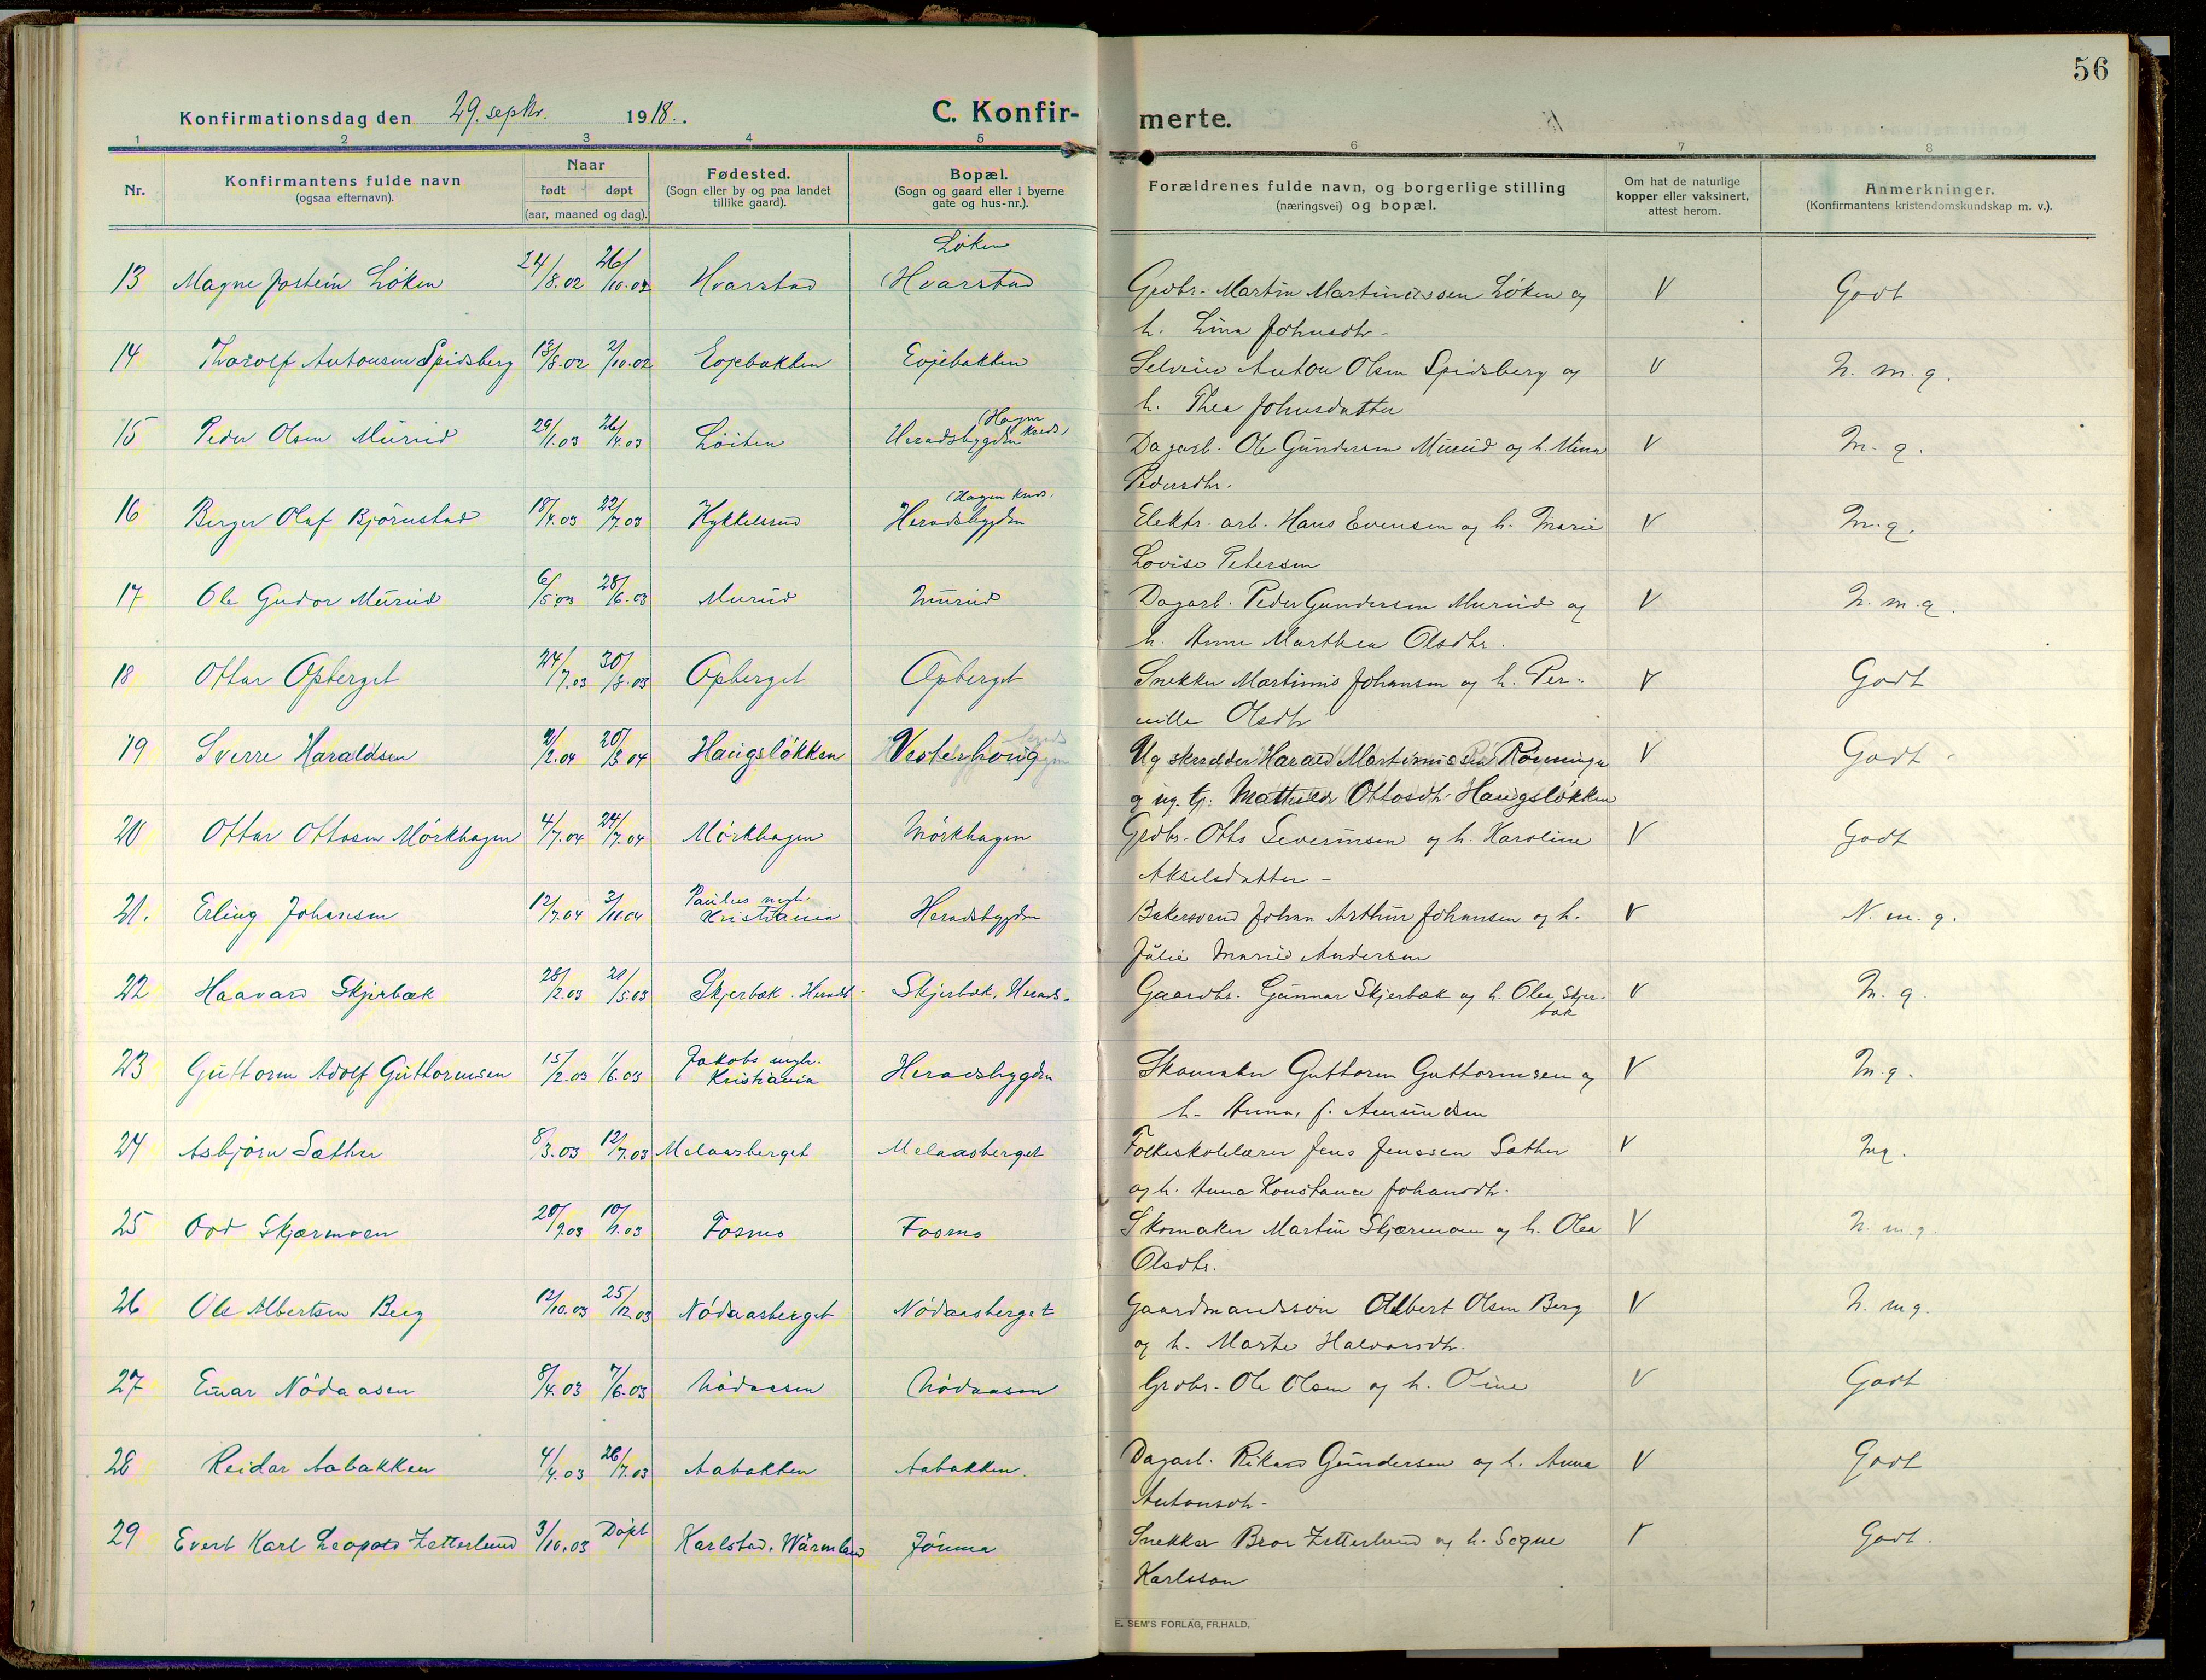 56
Konfirmationsdag den 29. septbr. 1918.
C. Konfir-
merte.
1 2 3 4 5 6 7 8
Nr.
Konfirmantens fulde navn
(ogsaa efternavn).
Naar
født døpt
(aar, maaned og dag).
Fødested.
(Sogn eller by og paa landet
tillike gaard).
Bopæl.
(Sogn og gaard eller i byerne
gate og hus-nr.).
Forældrenes fulde navn, og borgerlige stilling
(næringsvei) og bopæl.
Om hat de naturlige
kopper eller vaksinert,
attest herom.
Anmerkninger.
(Konfirmantens kristendomskundskap m. v.).
Løken
13 Magne Jostein Løken 24/8.02 26/10.02 Hvarstad Hvarstad Grdbr. Martin Martinussen Løken og V Godt
h. Lina Johnsdtr.
14 Thorolf Antonsen Spidsberg 13/8.02 2/10.02 Evjebakken Evjebakken Selveier Anton Olsen Spidsberg og V N. m. g.
h. Thea Johnsdatter
(Hagen
15 Peder Olsen Mürüd 29/1.03 26/4.03 Løiten Heradsbygden Kreds) Dagarb. Ole Gündersen Mürüd og h. Mina V M. g.
Pedersdtr.
(Hagen Kreds.
16 Birger Olaf Bjørnstad 18/4.03 22/7.03 Kykkelsrud Heradsbygden Elektr. arb. Hans Evensen og h. Marie V M. g.
Lovise Petersen
17 Ole Gudor Mürüd 6/5.03 28/6.03 Murüd Mürüd Dagarb. Peder Gundersen Murüd og V N. m. g.
h. Anne Marthea Olsdtr.
18 Ottar Opberget 24/7.03 30/8.03 Opberget Opberget Snekker Martinus Johansen og h. Per- V Godt
nille Olsdtr
19 Sverre Haraldsen 2/2.04 20/3.04 Haugsløkken Vesterhoug Ug skrædder Harald Martinussen Rønningen V Godt
og ug. tj. Mathilde Ottosdtr. Haugsløkken
20 Ottar Ottosen Mørkhagen 4/7.04 24/7.04 Mørkhagen Mørkhagen Grdbr. Otto Severinsen og h. Karoline V Godt
Akselsdatter
Paulus mgh.
21. Erling Johansen 12/7.04 3/11.04 Kristiania Heradsbygden Bakersvend Johan Arthur Johansen og h. V N. m. g.
Julie Marie Andersen
22 Haavard Skjerbæk 28/2.03 21/5.03 Skjerbæk. Heradsb Skjerbæk, Herads- Gaardbr. Günnar Skjerbæk og h. Olea Skjer- V M. g.
bæk
Jakobs mgh.
23 Guttorm Adolf Guttormsen 15/2.03 1/6.03 Kristiania Heradsbygden Skomaker Guttorm Guttormsen og V M. g.
h. Anna, f. Amundsen
24 Asbjørn Sæther 8/3.03 12/7.03 Melaasberget Melaasberget Folkeskolelærer Jens Jenssen Sæther V Mg.
og h. Anna Konstance Johansdtr.
25 Odd Skjærmoen 20/9.03 Fosmo Fosmo Skomaker Martin Skjærmoen og h. Olea V N. m. g.
Olsdtr.
26 Ole Albertsen Berg 12/10.03 25/12.03 Nódaasberget Nódaasberget Gaardmandssøn Albert Olsen Berg V N. mg.
og h. Marte Halvorsdtr.
27 Einar Nódaasen 8/4.03 7/6.03 Nódaasen Nódaasen Grdbr. Ole Olsen og h. Oline V Godt
28 Reidar Aabakken 4/4.03 26/7.03 Aabakken Aabakken. Dagarb. Rikard Gündersen og h. Anna V Godt
Antonsdtr.
29 Evert Karl Leopold Zetterlund 3/10.03 Døpt Karlstad, Wärmland Jómna Snekker Bror Zetterlund og h. Signe V Godt.
Karlsson
E. SEM'S FORLAG, FR.HALD.